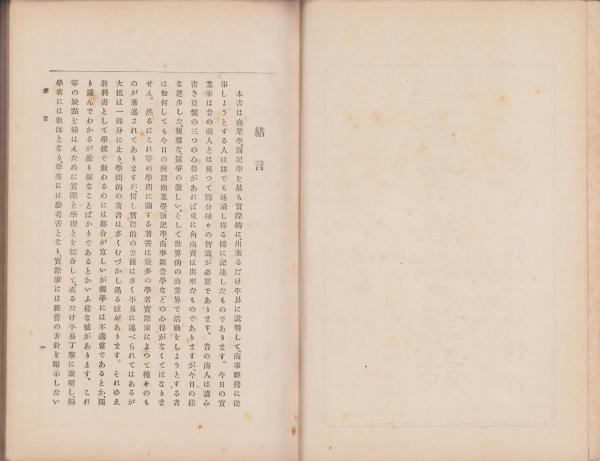 緒言
本書は商業學、簿記學を最も實際的に、出來るだけ平易に說明して、商事經營に從
事しようとする人は誰でも通讀し得る樣に記述したものであります。今日の實
業家は昔の商人とは異つて隨分種々の智識が必要であります。昔の商人は讀み
書き算盤の三つの心得があれば兎に角商賣は出來たものでありますが、今日の樣
な進步した、複雜な、競爭の激しい、そして世界的の商業界で活動をしようとする者
は如何しても今日の所謂商業學、簿記學、商事經營學などの心得がなくてはなりま
せん。然るにこれ等の學問に關する著書は幾多の學者實際家によつて種々のも
のが著述されてありますが、併し實際的の方面は多く平易に述べられてはあるが
大抵は一部分に止り、學問的の著書は多くむづかし過る嫌があります。それゆゑ
敎科書として學校で敎わるのには都合が宜しいが獨學には不適當であるとか、獨
り讀んでわかるが餘り俗なことばかりであるとかいふ樣な憾があります。これ
等の缺點を補はんために實際と學理とを綜合して、成るだけ平易丁寧に說明し、獨
學者には敎師となり、學生には參考書となり、實際家には經營の方針を暗示したい
緒言